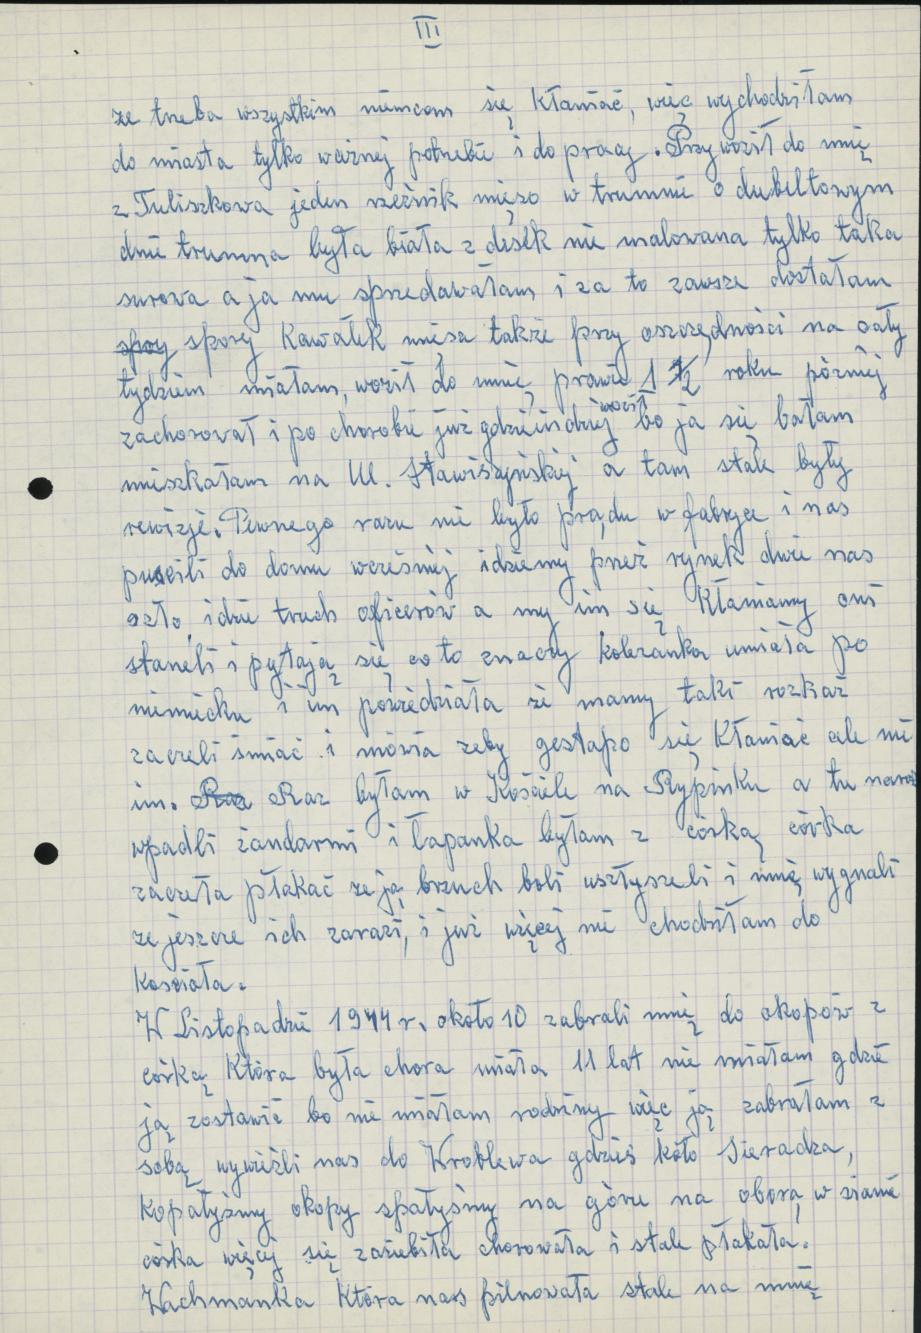 III
ze trzeba wszystkim niemcom się kłaniać, więc wychodziłam
do miasta tylko ważnej potrzebie i do pracy. Przywoził do mnię
z Tuliszkowa jeden rzeżnik mięso w trumnie o dubeltowym
dnie trumna była biała z desek nie malowana tylko taka
surowa a ja mu sprzedawałam i za to zawsze dostałam
spory kawałek mięsa także przy oszczędności na cały
tydzień miałam, woził do mnię prawie 1 1/2 roku póżniej
zachorował i po chorobie już gdzieindziej woził bo ja się bałam
mieszkałam na Ul. Stawiszyńskiej a tam stale były
rewizje. Pewnego razu nie było prądu w fabryce i nas
puścili do domu wcześniej idziemy przeż rynek dwie nas
szło, idzie trzech oficerów a my im się kłaniamy oni
staneli i pytają się co to znaczy koleżanka umiała po
niemiecku i im powiedziała że mamy taki rozkaż
zaczeli śmiać i mówia żeby gestapo się kłaniać ale nie
im. Raz byłam w Kościele na Rypinku a tu naraz
wpadli żandarmi i łapanka byłam z córką córka
zaczeła płakać że ją brzuch boli usłyszeli i mnię wygnali
że jeszcze ich zarazi, i już więcej nie chodziłam do
Kościoła.
W Listopadzie 1944 r. około 10 zabrali mnię do okopów z
córką która była chora miała 11 lat nie miałam gdzie
ją zostawić bo nie miałam rodziny więc ją zabrałam z
sobą wywieżli nas do Wroblewa gdzieś koło Sieradza,
kopałyśmy okopy spałyśmy na górze na oborą w sianie
córka więcej się zaziebiła chorowała i stale płakała.
Wachmanka która nas pilnowała stale na mnię